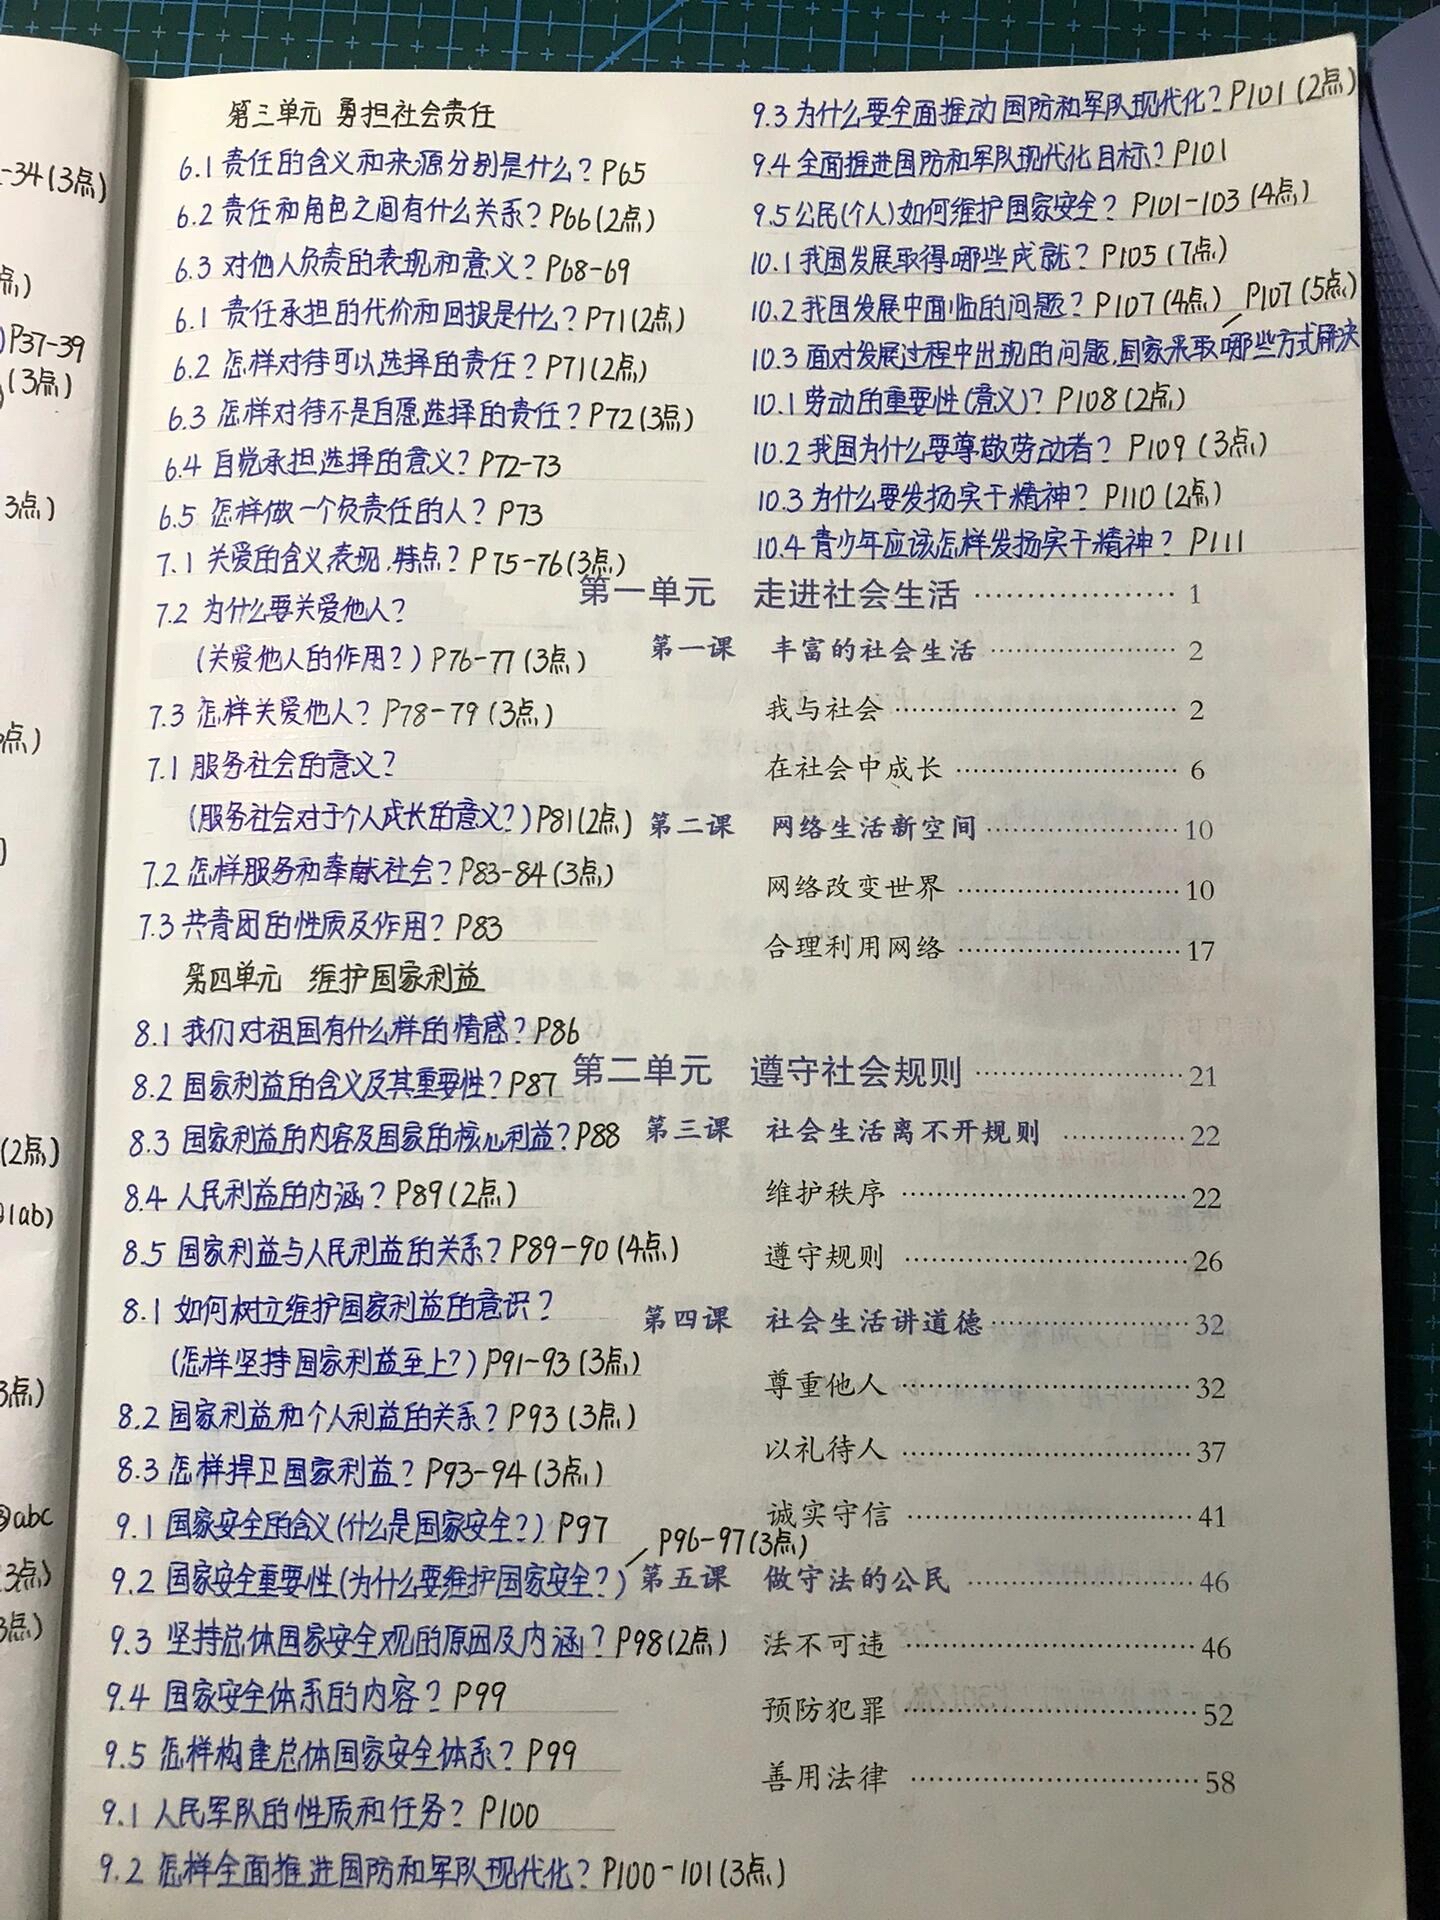 -34(3点)
点)
)P37-39
(3点)
3点)
点)
)
(2点)
(ab)
3点)
abc
3点)
3点)
第三单元 勇担社会责任
6.1 责任的含义和来源分别是什么? P65
6.2 责任和角色之间有什么关系? P66(2点)
6.3 对他人负责的表现和意义? P68-69
6.1 责任承担的代价和回报是什么? P71(2点)
6.2 怎样对待可以选择的责任? P71(2点)
6.3 怎样对待不是自愿选择的责任? P72(3点)
6.4 自觉承担选择的意义? P72-73
6.5 怎样做一个负责任的人? P73
7.1 关爱的含义、表现、特点? P75-76(3点)
7.2 为什么要关爱他人?
(关爱他人的作用?) P76-77(3点)
7.3 怎样关爱他人? P78-79(3点)
7.1 服务社会的意义?
(服务社会对于个人成长的意义?) P81(2点)
7.2 怎样服务和奉献社会? P83-84(3点)
7.3 共青团的性质及作用? P83
第四单元 维护国家利益
8.1 我们对祖国有什么样的情感? P86
8.2 国家利益的含义及其重要性? P87
8.3 国家利益的内容及国家的核心利益? P88
8.4 人民利益的内涵? P89(2点)
8.5 国家利益与人民利益的关系? P89-90(4点)
8.1 如何树立维护国家利益的意识?
(怎样坚持国家利益至上?) P91-93(3点)
8.2 国家利益和个人利益的关系? P93(3点)
8.3 怎样捍卫国家利益? P93-94(3点)
9.1 国家安全的含义(什么是国家安全?) P97
P96-97(3点)
9.2 国家安全重要性(为什么要维护国家安全?)
9.3 坚持总体国家安全观的原因及内涵? P98(2点)
9.4 国家安全体系的内容? P99
9.5 怎样构建总体国家安全体系? P99
9.1 人民军队的性质和任务? P100
9.2 怎样全面推进国防和军队现代化? P100-101(3点)
9.3 为什么要全面推动国防和军队现代化? P101(2点)
9.4 全面推进国防和军队现代化目标? P101
9.5 公民(个人)如何维护国家安全? P101-103(4点)
10.1 我国发展取得哪些成就? P105(7点)
10.2 我国发展中面临的问题? P107(4点) P107(5点)
10.3 面对发展过程中出现的问题,国家采取哪些方式解决
10.1 劳动的重要性(意义)? P108(2点)
10.2 我国为什么要尊敬劳动者? P109(3点)
10.3 为什么要发扬实干精神? P110(2点)
10.4 青少年应该怎样发扬实干精神? P111
第一单元 走进社会生活 ………………… 1
第一课 丰富的社会生活 ………………… 2
我与社会 ………………… 2
在社会中成长 ………………… 6
第二课 网络生活新空间 ………………… 10
网络改变世界 ………………… 10
合理利用网络 ………………… 17
第二单元 遵守社会规则 ………………… 21
第三课 社会生活离不开规则 ………………… 22
维护秩序 ………………… 22
遵守规则 ………………… 26
第四课 社会生活讲道德 ………………… 32
尊重他人 ………………… 32
以礼待人 ………………… 37
诚实守信 ………………… 41
第五课 做守法的公民 ………………… 46
法不可违 ………………… 46
预防犯罪 ………………… 52
善用法律 ………………… 58